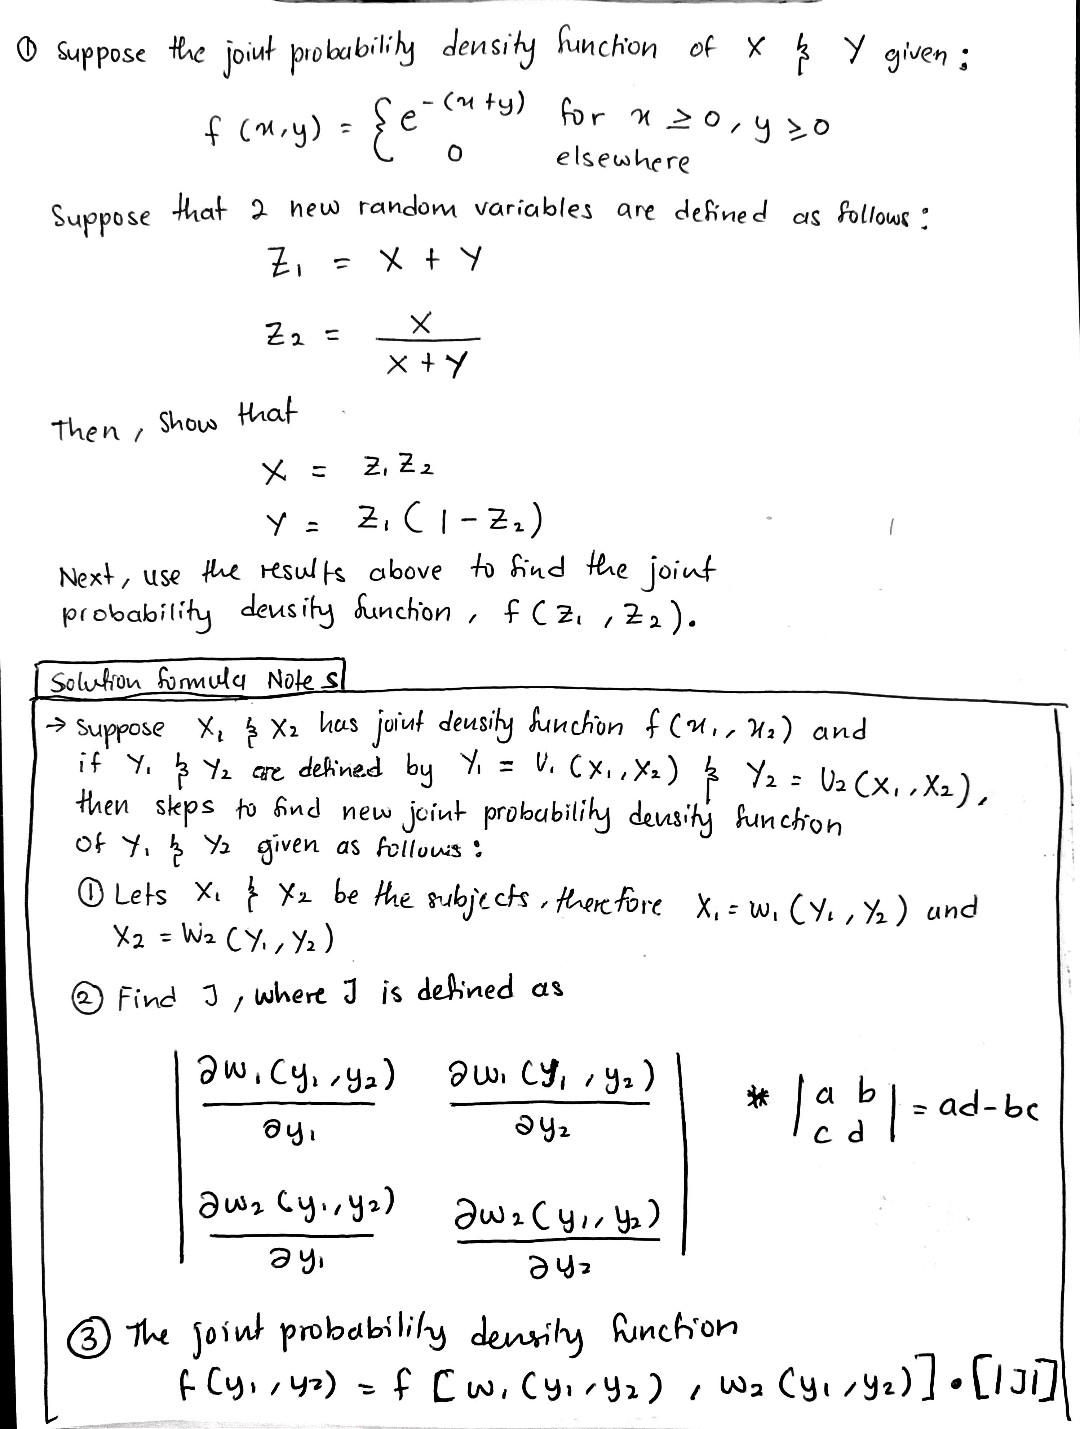 ① Suppose the joint probability density function of X & Y given :
f (x,y) = { e^-(x+y) for x ≥ 0, y ≥ 0
0 elsewhere
Suppose that 2 new random variables are defined as follows :
Z₁ = X + Y
Z₂ = X / X + Y
Then, Show that
X = Z₁ Z₂
Y = Z₁ ( 1 - Z₂ )
Next, use the results above to find the joint
probability density function , f ( Z₁ , Z₂ ).
Solution formula Notes
→ Suppose X₁ & X₂ has joint density function f (x₁, x₂) and
if Y₁ & Y₂ are defined by Y₁ = U₁ (X₁, X₂) & Y₂ = U₂ (X₁, X₂),
then steps to find new joint probability density function
of Y₁ & Y₂ given as follows :
① Lets X₁ & X₂ be the subjects, therefore X₁ = W₁ (Y₁, Y₂) and
X₂ = W₂ (Y₁, Y₂)
② Find J, where J is defined as
| ∂w₁(y₁,y₂) / ∂y₁ ∂w₁(y₁,y₂) / ∂y₂ | * | a b | = ad-bc
| ∂w₂(y₁,y₂) / ∂y₁ ∂w₂(y₁,y₂) / ∂y₂ | | c d |
③ The joint probability density function
f (y₁, y₂) = f [ w₁ (y₁, y₂) , w₂ (y₁, y₂) ] • [|J|]